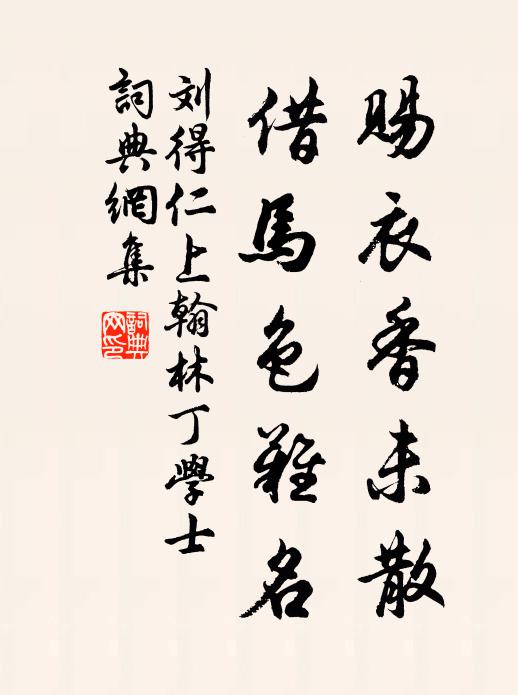 赐衣香未散
借馬色難名
刘得仁上翰林丁學士
詞典網集
詞典
网印